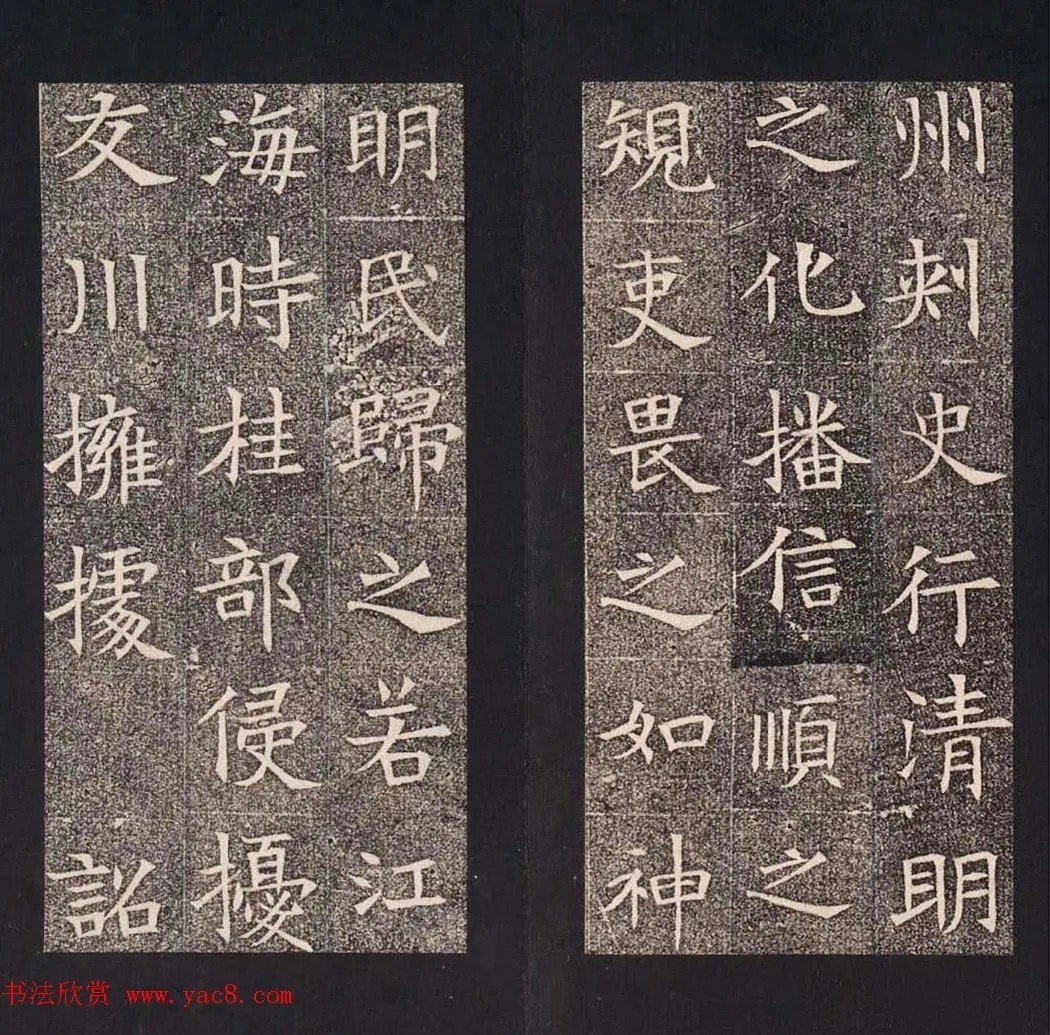 州刺史行清明
之化播信順之
規吏畏之如神
明民歸之若江
海時桂部侵擾
交川擁據 詔
书法欣赏 www.yac8.com